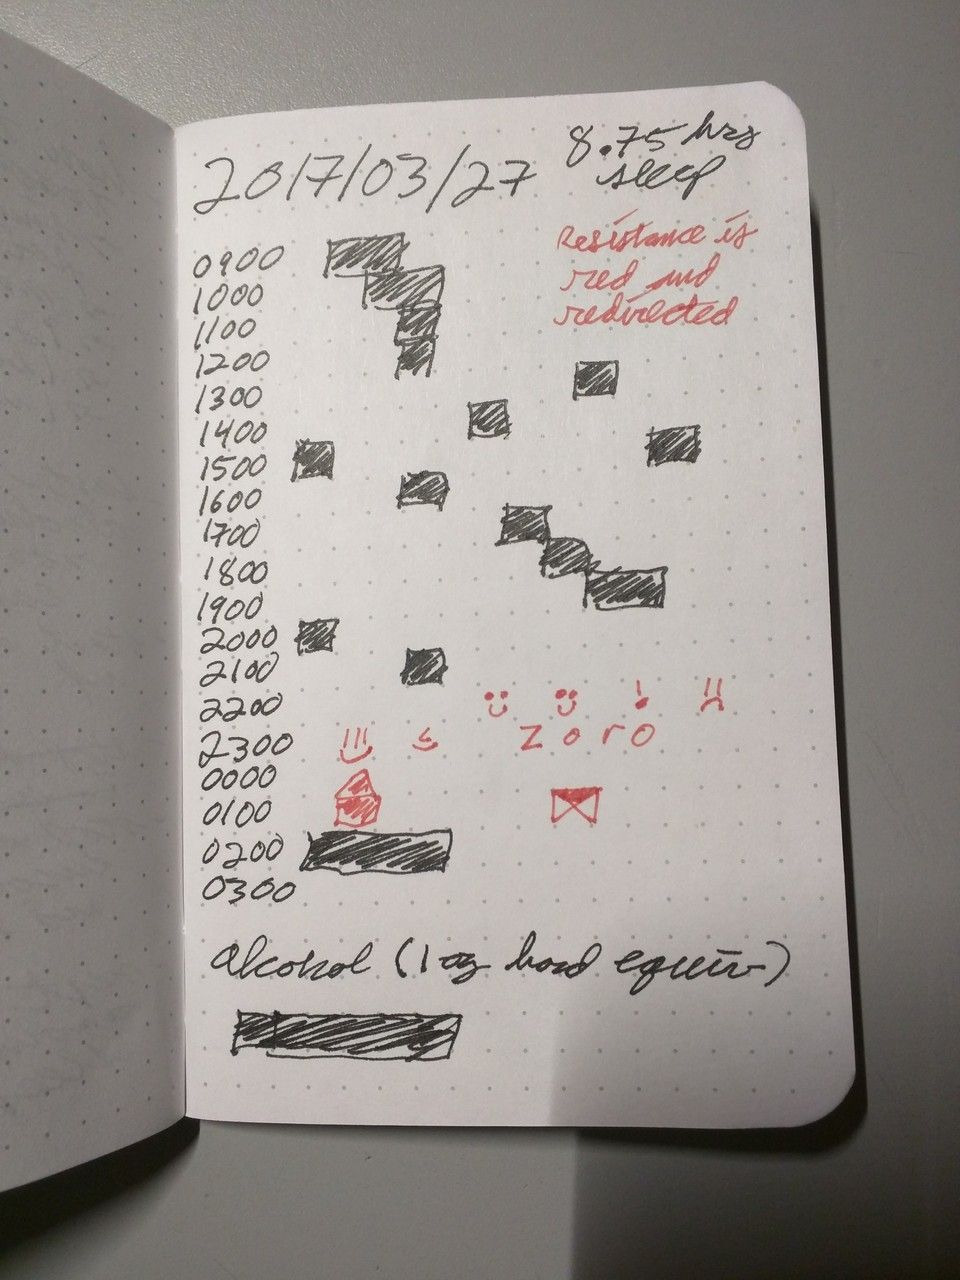 2017/03/27
8.75 hrs
sleep
Resistance is
red and
redirected
0900
1000
1100
1200
1300
1400
1500
1600
1700
1800
1900
2000
2100
2200
2300 zoro
0000
0100
0200
0300
alkohol (1 oz hard equiv)